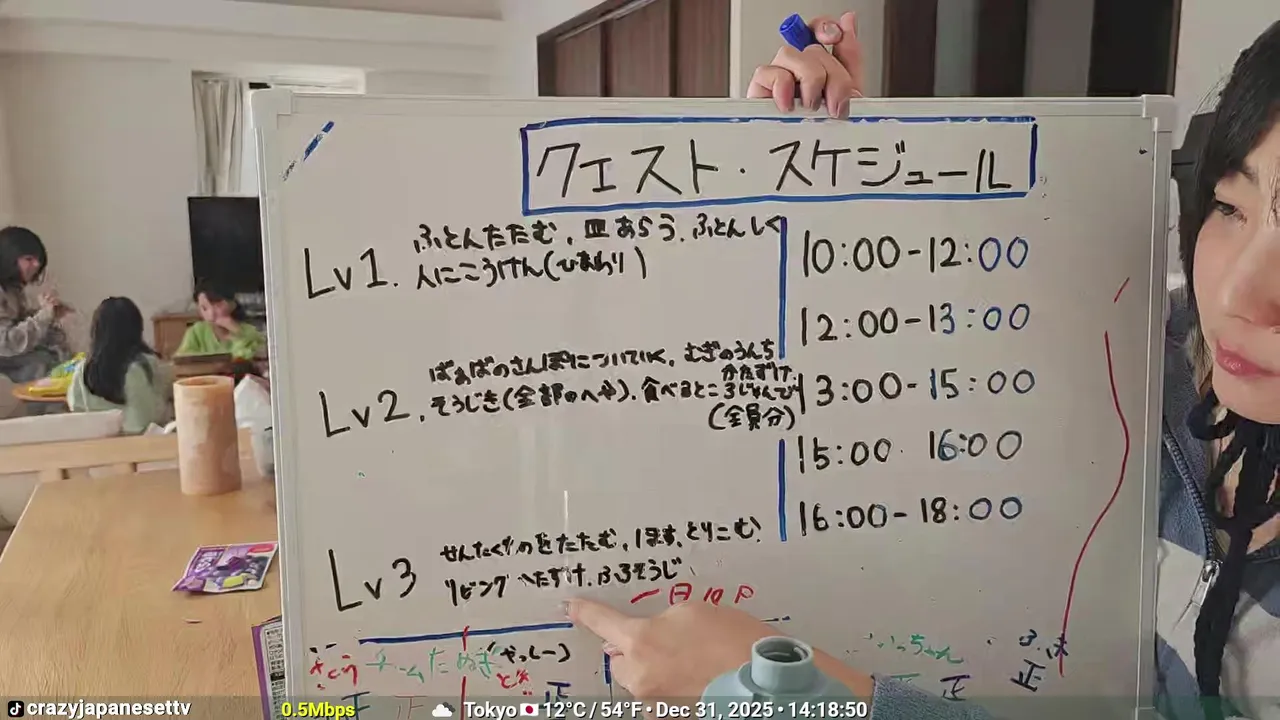 クエスト・スケジュール
Lv1.
ふとんたたむ、皿あらう、ふとんしく
人にこうけん(ひまわり)
10:00-12:00
12:00-13:00
Lv2.
ばぁばのさんぽについていく、むぎのうんち
かたずけ、
そうじき(全部のへや)、食べるところじゅんび
(全員分)
13:00-15:00
15:00 16:00
16:00-18:00
Lv3
せんたくものをたたむ、ほす、とりこむ、
リビングかたずけ、ふろそうじ
一日10P
チームたぬき(やっしー)
正 正 正 正
crazyjapanesettv
0.5Mbps
Tokyo 12°C / 54°F • Dec 31, 2025 • 14:18:50